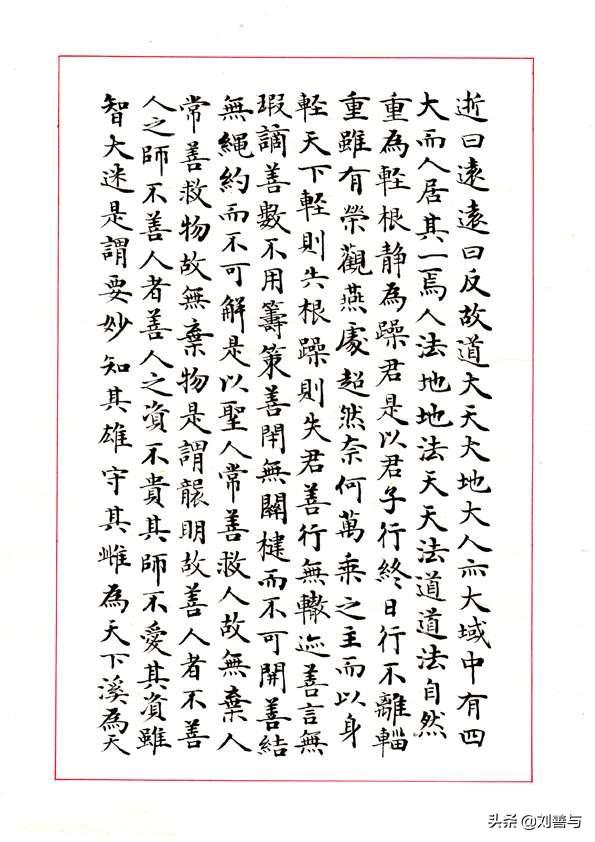 逝曰遠遠曰反故道大天大地大人亦大域中有四
大而人居其一焉人法地地法天天法道道法自然
重為輕根静為躁君是以君子行終日行不離輜
重雖有榮觀燕處超然奈何萬乘之主而以身
輕天下輕則失根躁則失君善行無轍迹善言無
瑕謫善數不用籌策善閉無關楗而不可開善結
無繩約而不可解是以聖人常善救人故無棄人
常善救物故無棄物是謂襲明故善人者不善
人之師不善人者善人之資不貴其師不愛其資雖
智大迷是謂要妙知其雄守其雌為天下溪為天
头条 @刘善与